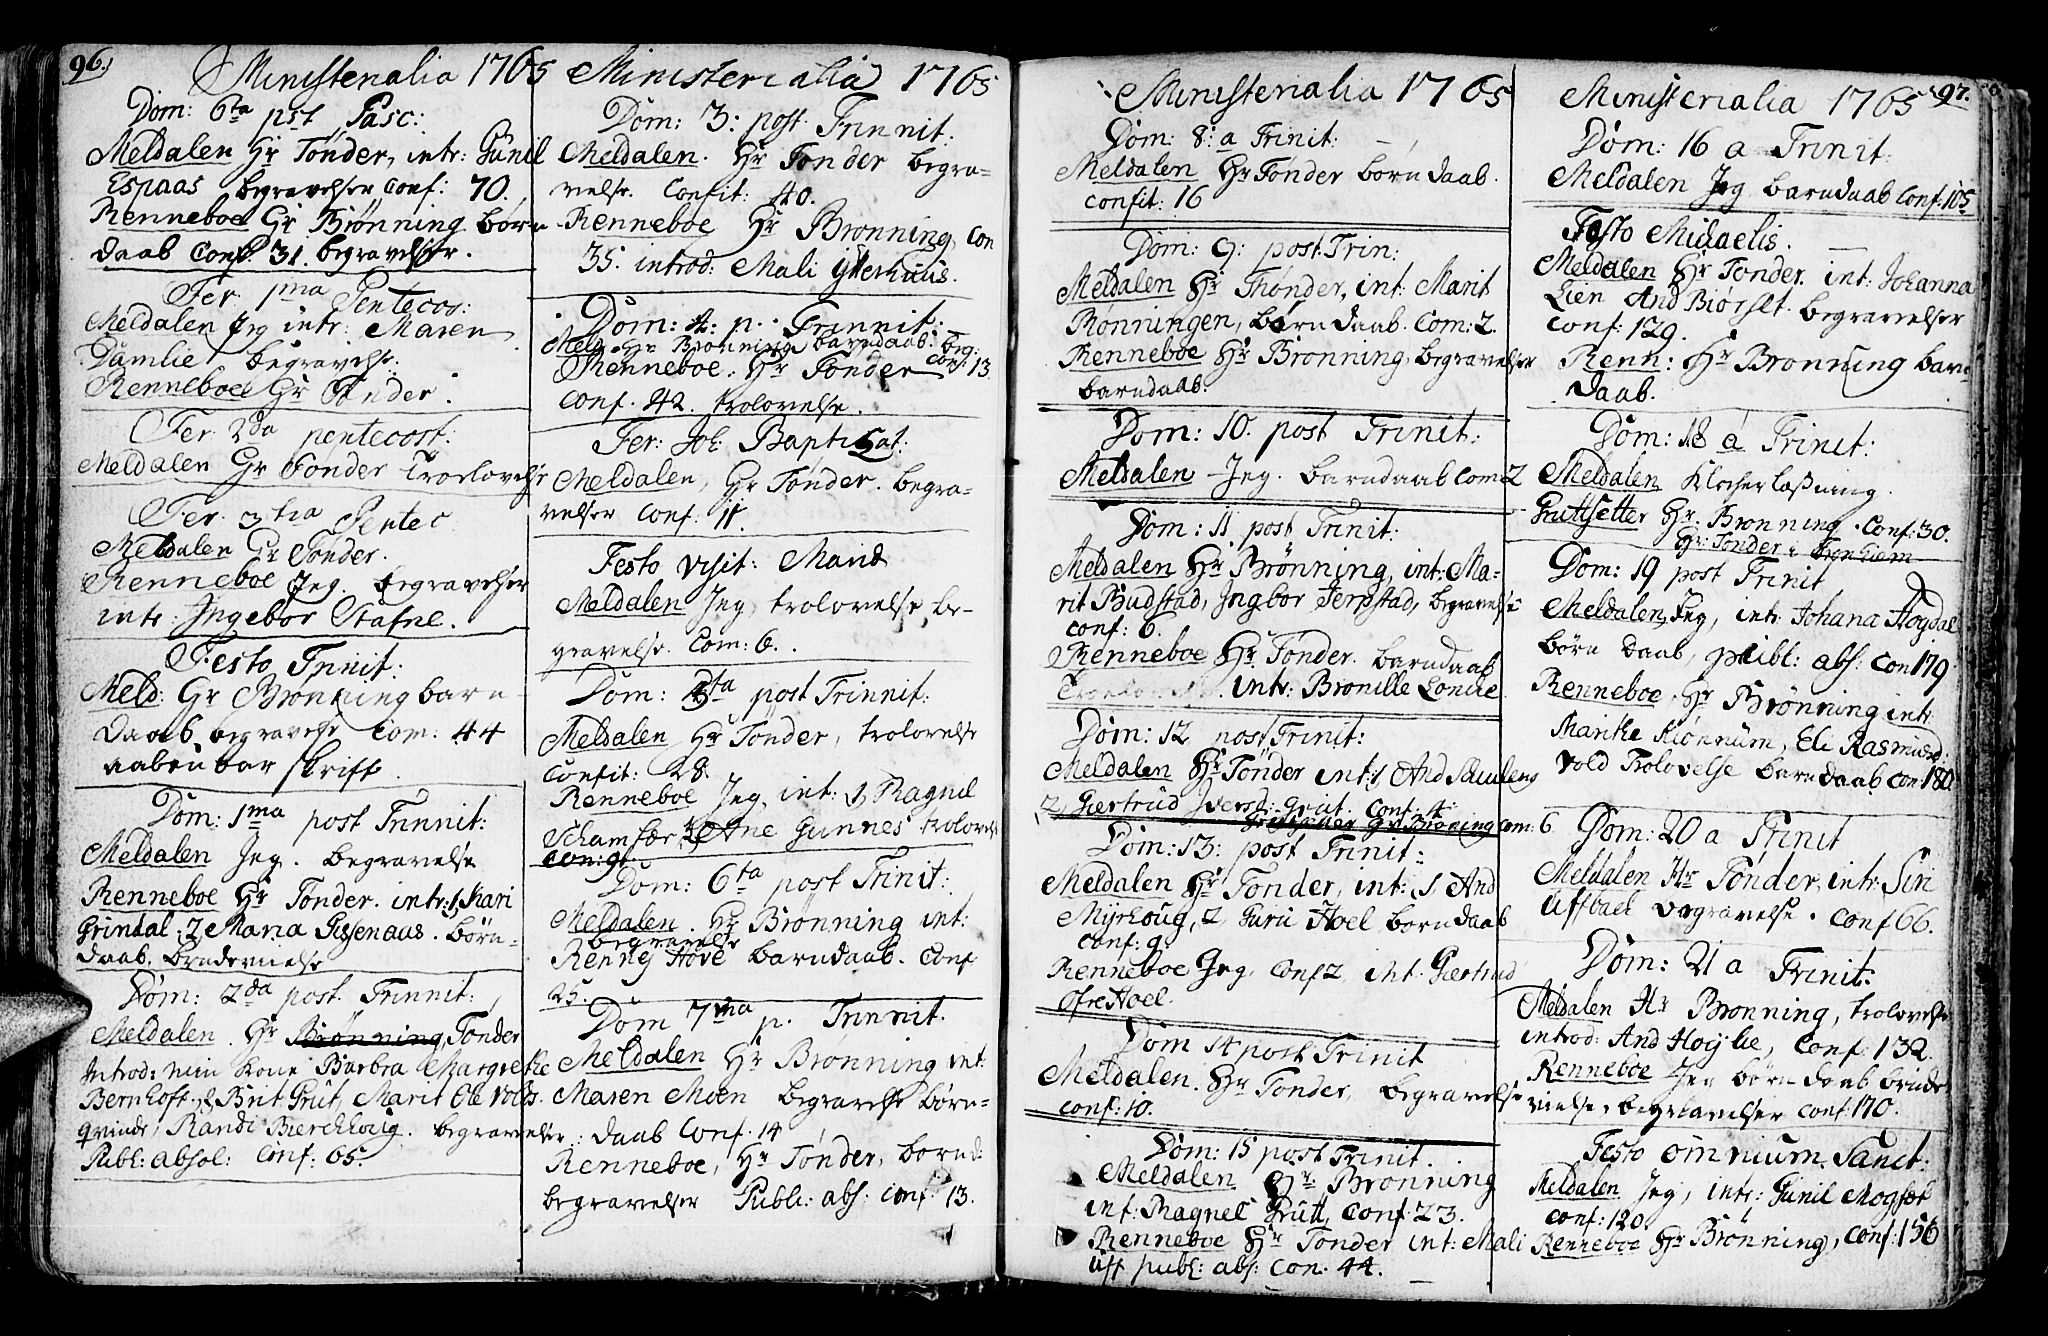 96.
Ministerialia 1765
Dom: 6ta pst Pasc:
Meldalen Hr Tønder, intr: Gunil
Espaas begravelser conf: 70.
Renneboe Hr Brønning børn
daab conf. 31. begravelser.
Fer. 1ma Pentecos:
Meldalen Jeg intr: Maren
Damlie begravelse.
Renneboe Hr Tønder.
Fer. 2da pentecost:
Meldalen Hr Tønder Trolovelse
Fer. 3tia Pentec
Meldalen Hr Tønder.
Renneboe Jeg. begravelser
intr: Ingebor Stafne.
Festo Trinit:
Meld: Hr Brønning barn
daab begravelse Com: 44
aabenbar skrift.
Dom: 1ma post Trinnit:
Meldalen Jeg. begravelse
Renneboe Hr Tønder. intr: 1, Kari
Grindal. 2 Maria Gissenaas. børn-
daab. brudevielse
Dom: 2da post. Trinnit:
Meldalen. Hr Brønning, Tønder
Introd: min kone Barbra Margrethe
Bernhoft, Brit Grut, Marit Ole Volds.
qvinde, Randi Bierchhoug. begravelser.
Publ: absol: conf: 65.
Ministerialia 1765
Dom: 3: post. Trinnit:
Meldalen. Hr Tønder begra-
velse. Confit: 40.
Renneboe Hr Brønning, con
35. introd: Mali Ytterhuus.
Dom: 4: p. Trinnit:
Meld. Hr Brønning barndaab. beg:
conf: 13
Renneboe. Hr Tønder
conf. 42. trolovelse.
Fer: Joh: Baptisat:
Meldalen, Hr Tønder. begra-
velser conf: 11.
Festo visit: Mariæ
Meldalen Jeg, trolovelse, be-
gravelse. Com: 6.
Dom: 5ta post Trinnit:
Meldalen Hr Tønder, trolovelse
Confit: 28.
Renneboe Jeg, int: 1, Ragnil
Schamfær, 2, Ane Gunnes trolovelse
con: 91.
Dom: 6ta post Trinit:
Meldalen. Hr Brønning int:
begravelse
Renney Hove barndaab. Conf
25.
Dom 7ma p. Trinnit.
Meldalen Hr Brønning int:
Maren Moen begravelse børn-
daab Conf. 14
Renneboe, Hr Tønder, børnd:
begravelser Publi: abs: conf: 13.
Ministerialia 1765
Dom: 8: a Trinit:
Meldalen Hr Tønder børn daab.
confit: 16
Dom: 9: post. Trin:
Meldalen Hr Thønder, int: Marit
Rønningen, børn daab. Com: 2.
Renneboe Hr Brønning, begravelser
barndaab.
Dom: 10. post Trinit:
Meldalen Jeg. barndaab Com: 2
Dom: 11 post Trinit:
Meldalen Hr Brønning, int: Ma-
rit Budstad, Ingbor Jerpstad, begravelse
conf: 6.
Renneboe Hr Tønder. barndaab
intr: Bronille Lonice.
Dom: 12 post Trinit:
Meldalen Hr Tønder int: 1, And Skulens
2, Giertrud Iversd: Grut. Conf: 4.
Hr Brøning com: 6.
Dom: 13: post Trinit:
Meldalen Hr Tønder, int: 1 And
Myrhoug, 2, Guru Hoel børn daab
conf: 9.
Renneboe Jeg, conf 2 int. Giertrud
Øfre Hoel.
Dom 14 post Trinit
Meldalen. Hr Tønder, begravelse
conf: 10.
Dom: 15 post Trinit.
Meldalen Hr Brønning
int: Ragnel Grutt, conf: 23.
Renneboe Hr Tønder int: Mali
Uff publ: abs: con. 44.
97.
Ministerialia 1765
Dom: 16 a Trinit:
Meldalen Jeg barndaab Conf: 105
Festo Michaelis.
Meldalen Hr Tønder. int: Johanna
Lien And Biørset. begravelser
conf: 129.
Renn: Hr Brønning barn
daab.
Dom: 18 á Trinit:
Meldalen Klocherlæsning.
Gruttsetter Hr. Brønning. Conf: 30.
Hr: Tønder i Tronhiem
Dom: 19 post Trinit
Meldalen, Jeg, intr: Johana Hogdal
børn daab, publ: abs: con 179
Renneboe, Hr Brønning intr:
Marike Kiønnum, Eli Rasmusd:
vold Trolovelse barn daab con: 180
Dom: 20 a Trinit
Meldalen Hr Tønder, intr: Siri
Uffbach begravelse. conf 66.
Dom: 21 a Trinit:
Meldalen Hr Brønning, trolovelse
introd: And Hoylie, Conf: 132.
Renneboe Jeg børn daab brude
vielse, begravelser conf: 170.
Festo omnium Sanct:
Meldalen Jeg, intr: Gunil Mogset
conf: 120
Renneboe Hr Brønning, conf: 156